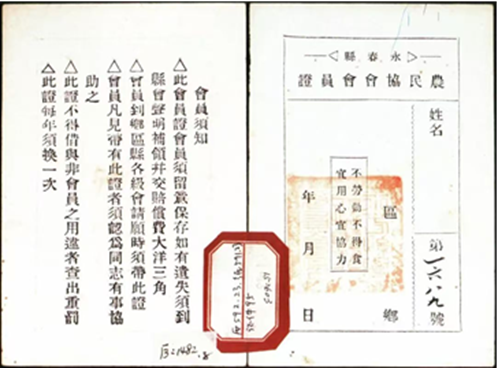 永春縣
農民協會會員證
姓名
第一六八九號
區 鄉
不勞動不得食
實用心實協力
年 月 日
會員須知
△此會員證會員須留意保存如有遺失須到
縣會聲明補領幷交賠償費大洋三角
△會員到鄉區縣各級會請願時須帶此證
△會員凡見帶有此證者須認爲同志有事協
助之
△此證不得借與非會員之用違者查出重罰
△此證每年須換一次